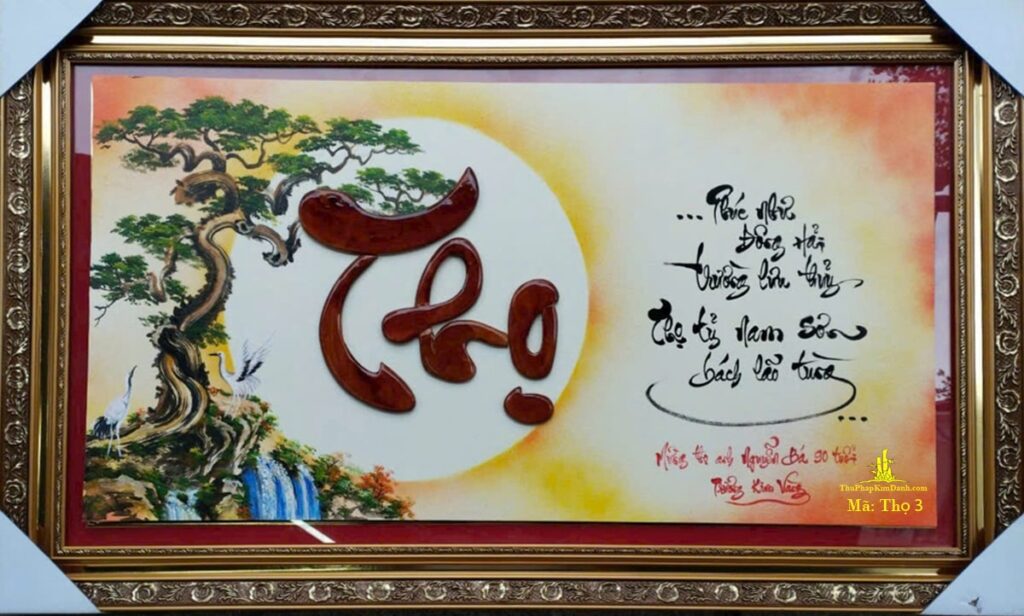 Thọ
... Phúc như
Đông Hải
trường lưu thủy
Thọ tỷ nam sơn
bách lão tùng
...
Mừng thọ anh Nguyễn Bá 90 tuổi
Kim Vàng
ThuPhapKimDanh.com
Mã: Thọ 3